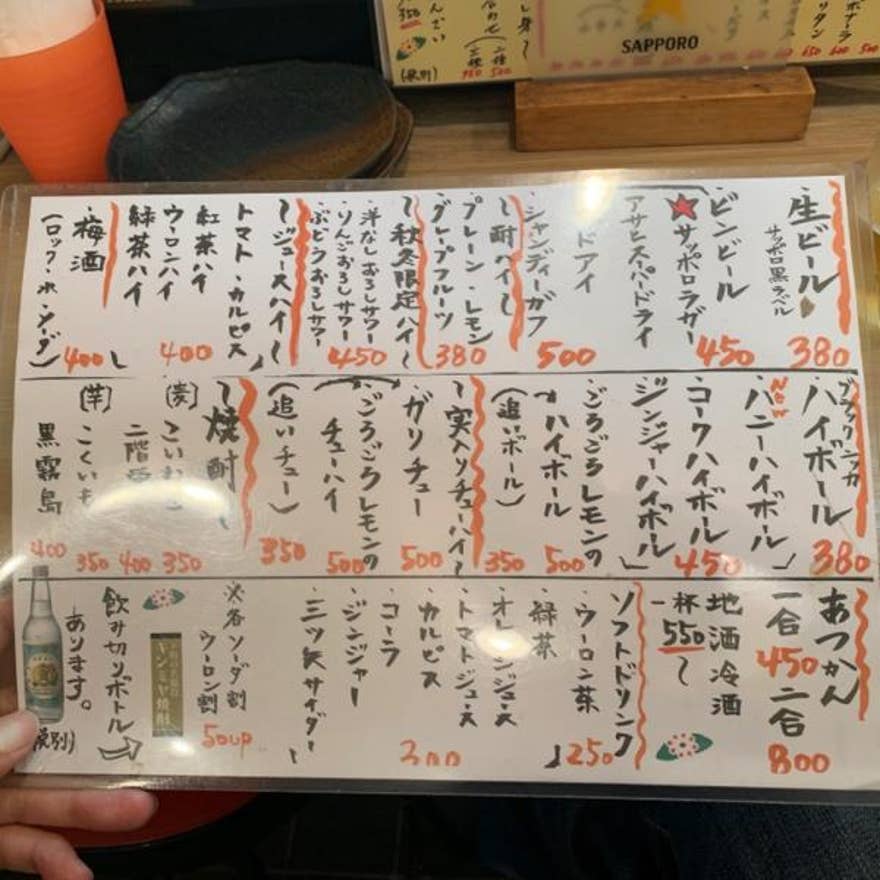 SAPPORO
生ビール
サッポロ黒ラベル
380
・ビンビール
★サッポロラガー
450
アサヒスーパードライ
ドアイ
・シャンディーガフ
500
〜酎ハイ〜
・プレーン・レモン
・グレープフルーツ
380
〜秋冬限定ハイ〜
・洋なしおろしサワー
・りんごおろしサワー
・ぶどうおろしサワー
450
〜ジュースハイ〜
トマト・カルピス
紅茶ハイ
ウーロンハイ
緑茶ハイ
400
・梅酒
(ロック・水・ソーダ)
400
ブラックニッカ
ハイボール
380
New
・ハニーハイボール
・コークハイボール
・ジンジャーハイボール
450
・ごろごろレモンの
ハイボール
500
(追いボール)
350
〜実入りチューハイ〜
・ガリチュー
500
・ごろごろレモンの
チューハイ
500
(追いチュー)
350
〜焼酎〜
(麦)
350
二階堂
400
(芋)
こくいも
350
黒霧島
400
あつかん
一合
450
二合
800
地酒冷酒
一杯
550〜
ソフトドリンク
・ウーロン茶
・緑茶
250
・オレンジジュース
・トマトジュース
・カルピス
・コーラ
・ジンジャー
・三ツ矢サイダー
300
※各ソーダ割
ウーロン割
50up
キンミヤ焼酎
飲み切りボトル
あります。
(税別)